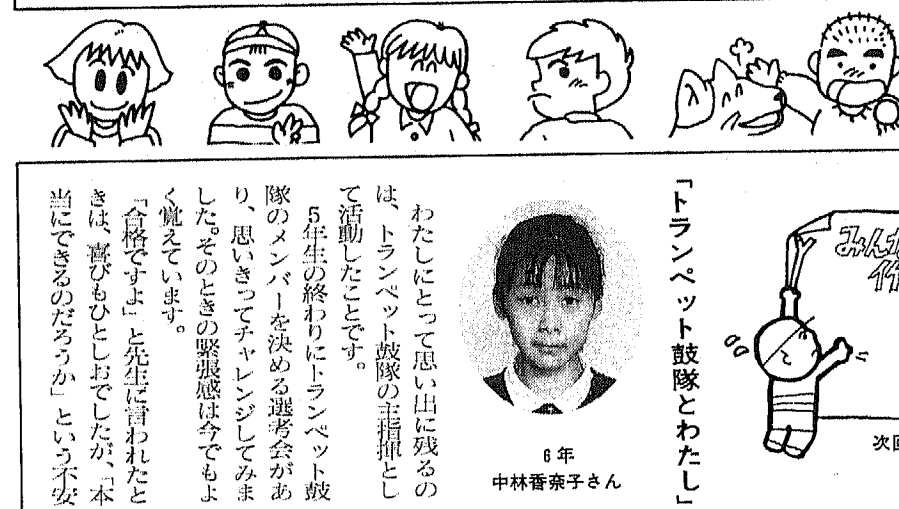 みんな
作
次回
「トランペット鼓隊とわたし」
6年
中林香奈子さん
わたしにとって思い出に残るの
は、トランペット鼓隊の主指揮とし
て活動したことです。
5年生の終わりにトランペット鼓
隊のメンバーを決める選考会があ
り、思いきってチャレンジしてみま
した。そのときの緊張感は今でもよ
く覚えています。
「合格ですよ」と先生に言われたと
きは、喜びもひとしおでしたが、「本
当にできるのだろうか」という不安